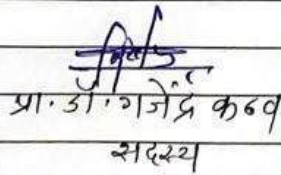 प्रा. डॉ. गजेंद्र कळव
सदस्य